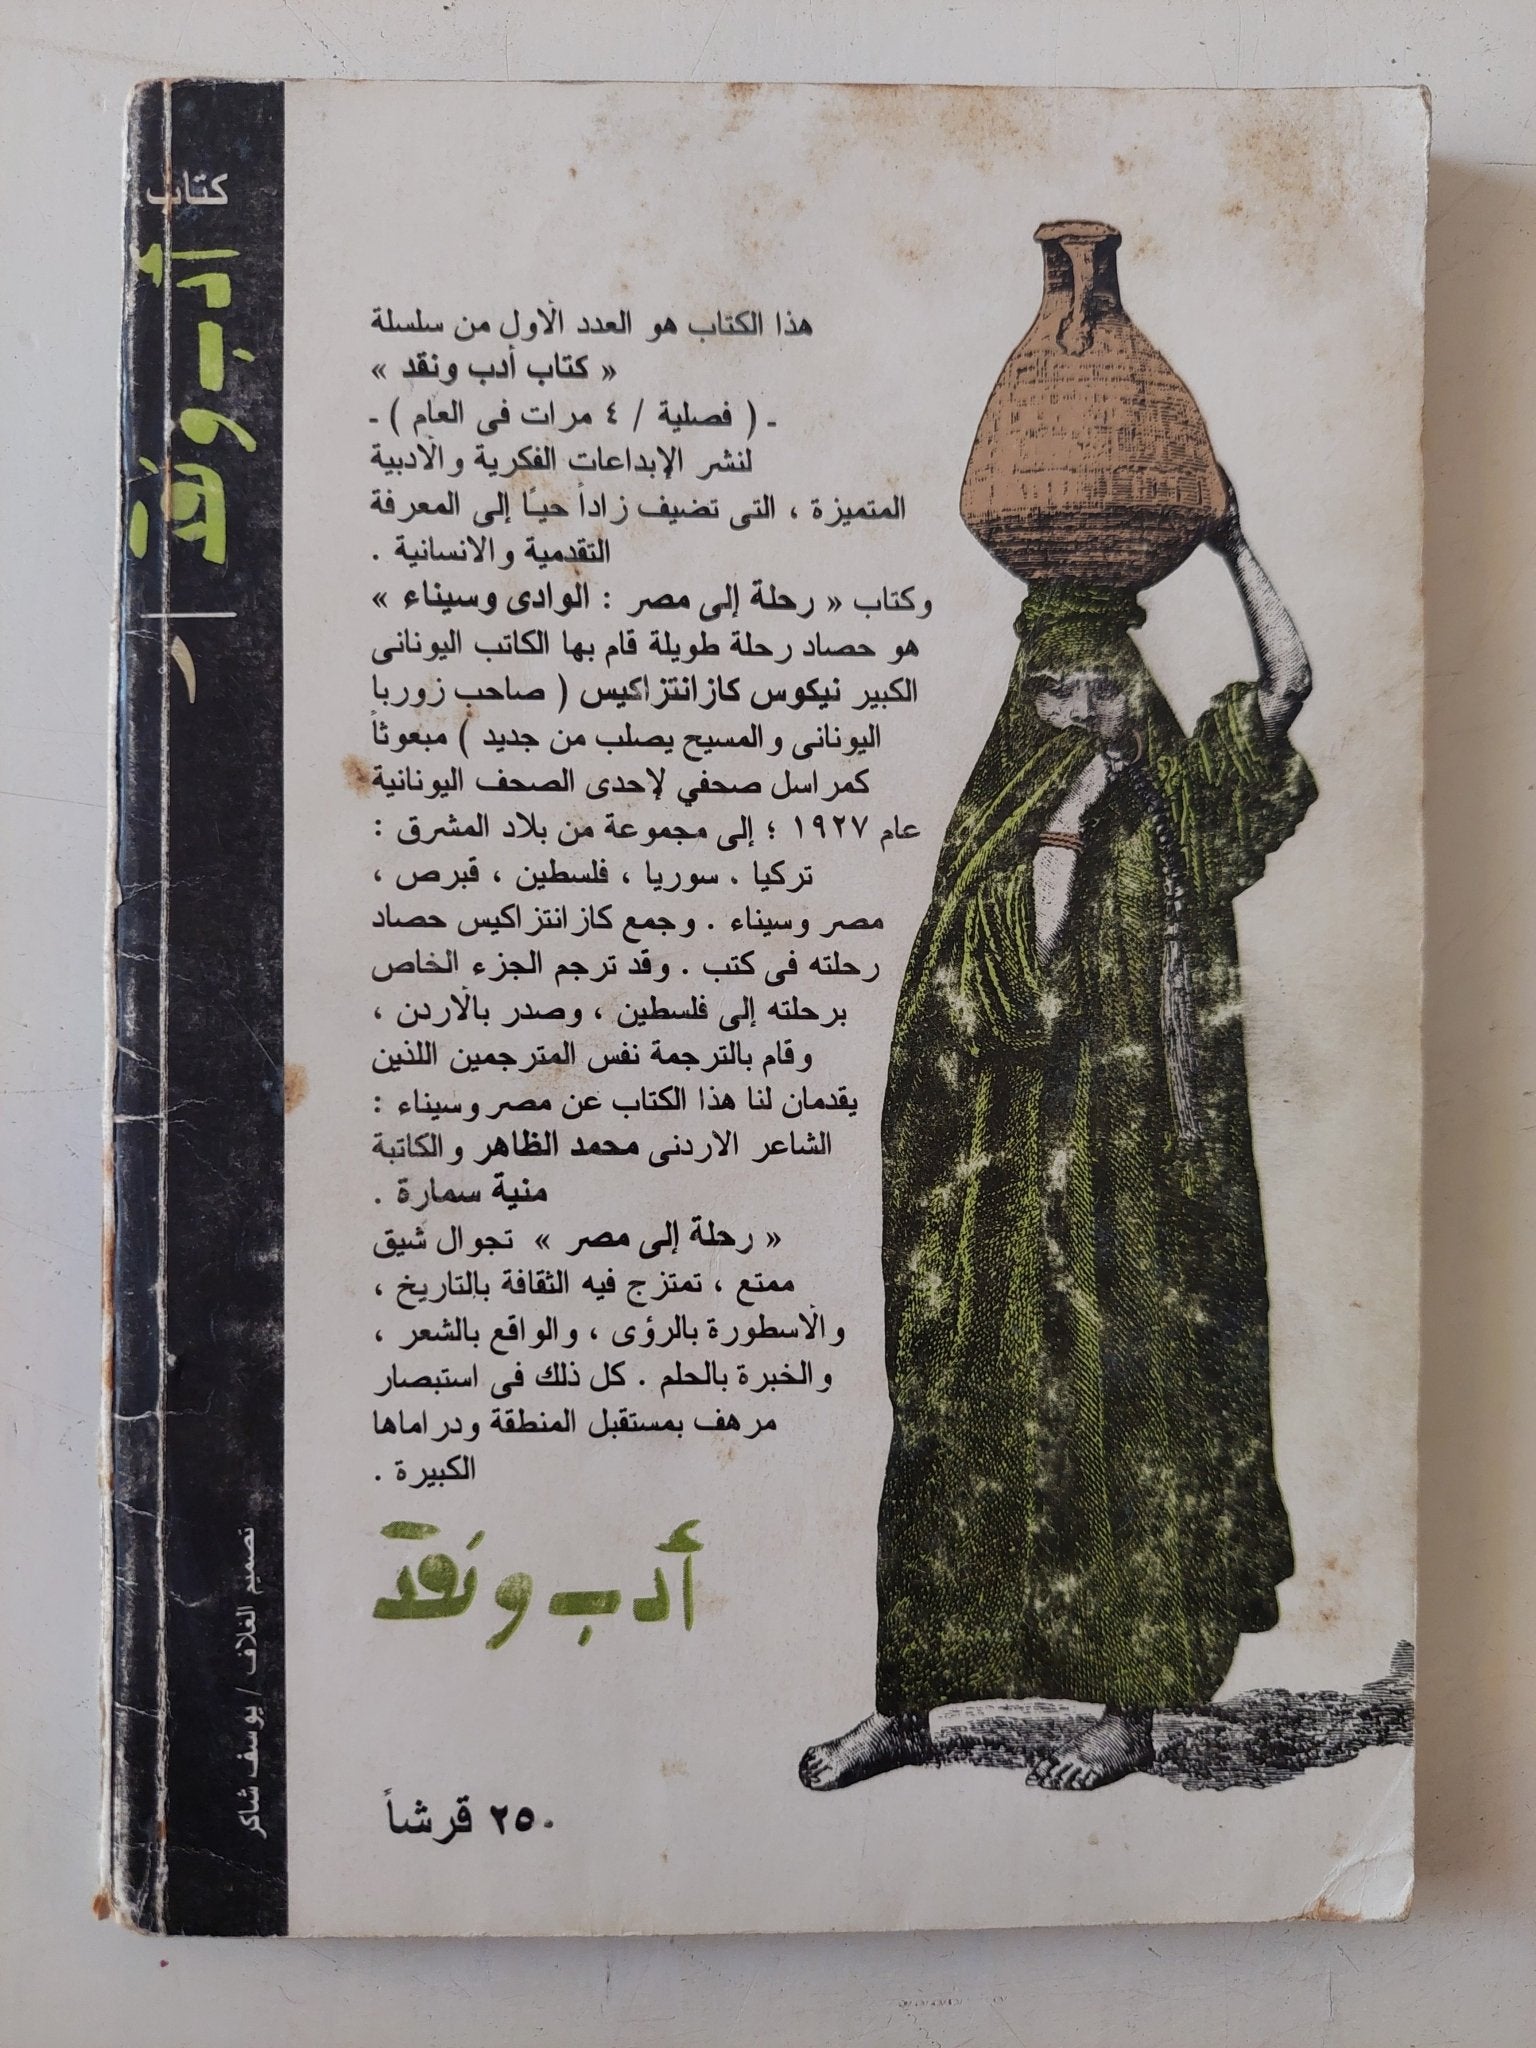 كتاب
أدب ونقد
١
تصميم الغلاف / يوسف شاكر
هذا الكتاب هو العدد الأول من سلسلة
« كتاب أدب ونقد »
ـ ( فصلية / ٤ مرات فى العام ) ـ
لنشر الإبداعات الفكرية والأدبية
المتميزة ، التى تضيف زاداً حياً إلى المعرفة
التقدمية والانسانية .
وكتاب « رحلة إلى مصر : الوادى وسيناء »
هو حصاد رحلة طويلة قام بها الكاتب اليونانى
الكبير نيكوس كازانتزاكيس ( صاحب زوربا
اليونانى والمسيح يصلب من جديد ) مبعوثاً
كمراسل صحفي لإحدى الصحف اليونانية
عام ١٩٢٧ ؛ إلى مجموعة من بلاد المشرق :
تركيا . سوريا ، فلسطين ، قبرص ،
مصر وسيناء . وجمع كازانتزاكيس حصاد
رحلته فى كتب . وقد ترجم الجزء الخاص
برحلته إلى فلسطين ، وصدر بالأردن ،
وقام بالترجمة نفس المترجمين اللذين
يقدمان لنا هذا الكتاب عن مصر وسيناء :
الشاعر الاردنى محمد الظاهر والكاتبة
منية سمارة .
« رحلة إلى مصر » تجوال شيق
ممتع ، تمتزج فيه الثقافة بالتاريخ ،
والأسطورة بالرؤى ، والواقع بالشعر ،
والخبرة بالحلم . كل ذلك فى استبصار
مرهف بمستقبل المنطقة ودراماها
الكبيرة .
أدب ونقد
٢٥٠ قرشاً